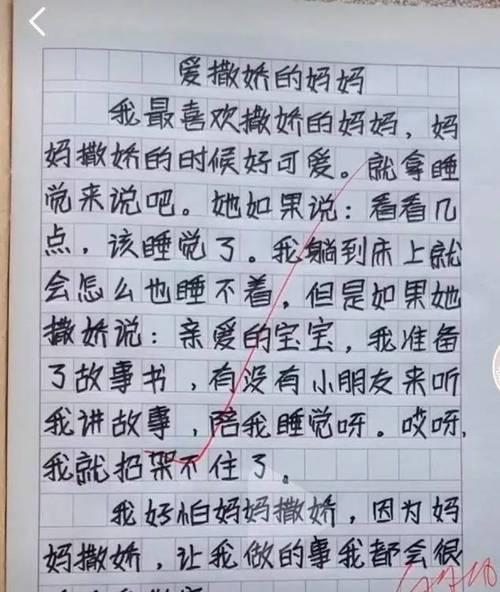 爱撒娇的妈妈
我最喜欢撒娇的妈妈，妈
妈撒娇的时候好可爱。就拿睡
觉来说吧。她如果说：看看几
点，该睡觉了。我躺到床上就
会怎么也睡不着，但是如果她
撒娇说：亲爱的宝宝，我准备
了故事书，有没有小朋友来听
我讲故事，陪我睡觉呀。哎呀，
我就招架不住了。
我好怕妈妈撒娇，因为妈
妈撒娇，让我做的事我都会很